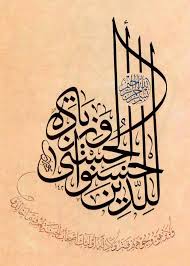 بسم الله الرحمن الرحيم
للذين احسنوا الحسنى وزيادة
ولا يرهق وجوههم قتر ولا ذلة اولئك اصحاب الجنة هم فيها خالدون